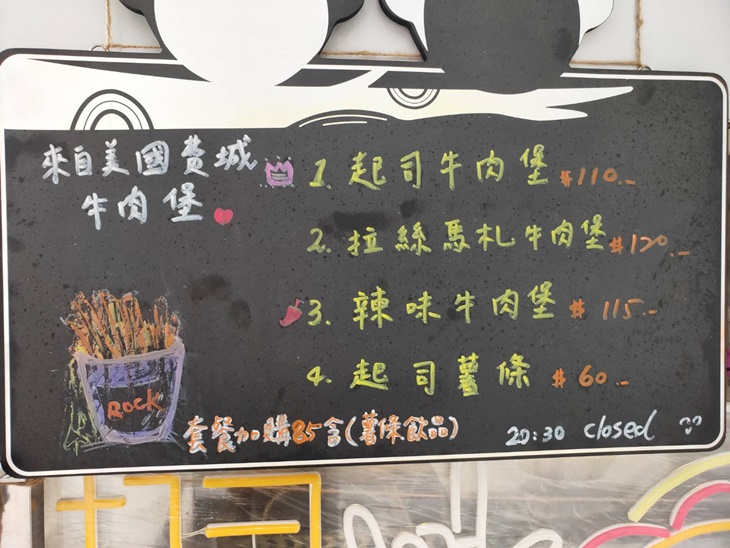 來自美國費城
牛肉堡
1. 起司牛肉堡 $110.-
2. 拉絲馬札牛肉堡 $120.-
3. 辣味牛肉堡 $115.-
4. 起司薯條 $60.-
ROCK
套餐加購85含(薯條飲品)
20:30 closed